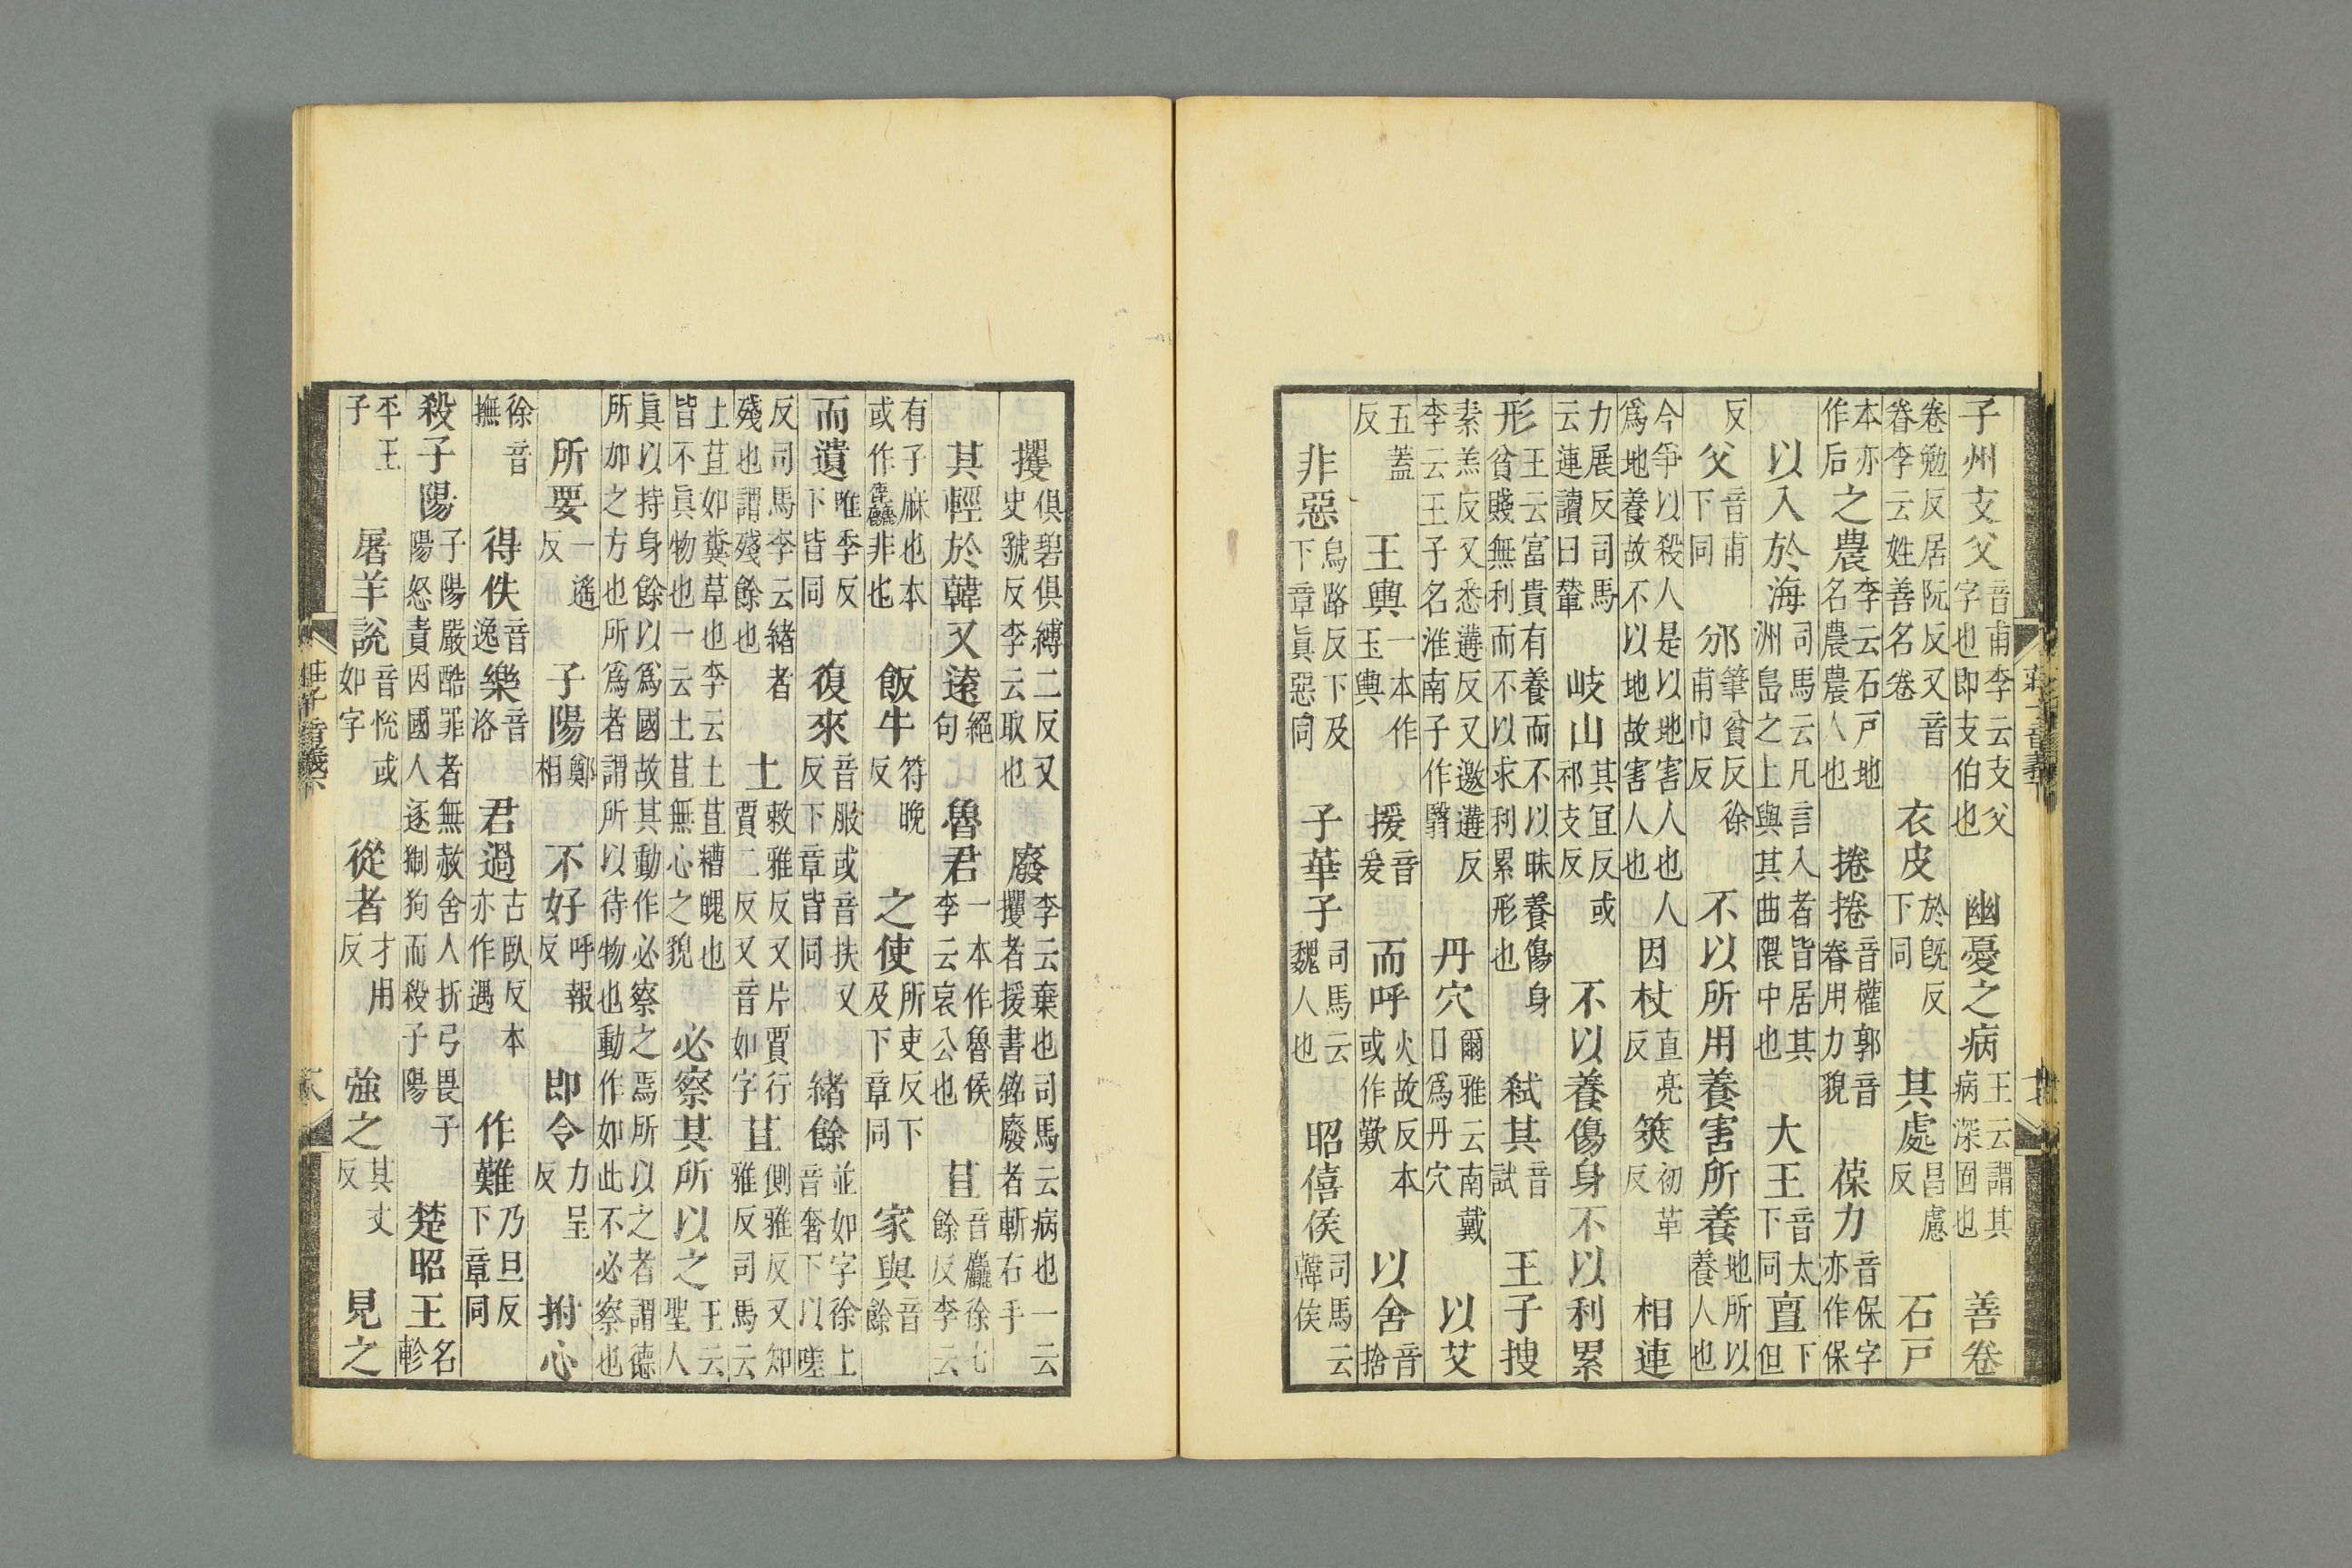 子州支父音甫李云支父字也即支伯也幽憂之病王云謂其病深固也善卷
卷勉反居阮反又音眷李云姓善名卷衣皮於旣反下同其處昌慮反石戸
本亦作后之農李云石戸地名農農人也捲捲音權郭音眷用力貌葆力音保字亦作保
以入於海司馬云凡言入者皆居其洲島之上與其曲隈中也大王音太下同亶下但
反父音甫下同邠筆貧反徐甫巾反不以所用養害所養地所以養人也
今爭以殺人是以地害人也人爲地養故不以地故害人也因杖直亮反筴初革反相連
力展反司馬云連讀曰輦岐山其宜反或祁支反不以養傷身不以利累
形王云富貴有養而不以昧養傷身貧賤無利而不以求利累形也弑其音試王子搜
素羔反又悉遘反又邀遘反李云王子名淮南子作翳丹穴爾雅云南戴日爲丹穴以艾
五蓋反王輿一本作玉輿援音爰而呼火故反本或作歎以舍音捨
非惡烏路反下及下章眞惡同子華子司馬云魏人也昭僖侯司馬云韓侯
攫俱碧俱縛二反又史虢反李云取也廢李云棄也司馬云病也一云攫者援書銘廢者斬右手
其輕於韓又遠絕句魯君一本作魯侯李云哀公也苴音麤徐七餘反李云
有子麻也本或作麤非也飯牛符晚反之使所吏反下及下章同家與音餘
而遺唯季反下皆同復來音服或音扶又反下章皆同緒餘並如字徐上音奢下以嗟
反司馬李云緒者殘也謂殘餘也土敕雅反又片賈行賈二反又音如字苴側雅反又知雅反司馬云
土苴如糞草也李云土苴糟魄也皆不眞物也一云土苴無心之貌必察其所以之王云聖人
眞以持身餘以爲國故其動作必察之焉所以之者謂德所加之方也所爲者謂所以待物也動作如此不必察也
所要一遙反子陽鄭相不好呼報反即令力呈反拊心
徐音撫得佚音逸樂音洛君過古臥反本亦作遇作難乃旦反下章同
殺子陽子陽嚴酷罪者無赦舍人折弓畏子陽怒責因國人逐猘狗而殺子陽楚昭王名軫
平王子屠羊說音悅或如字從者才用反強之其丈反見之